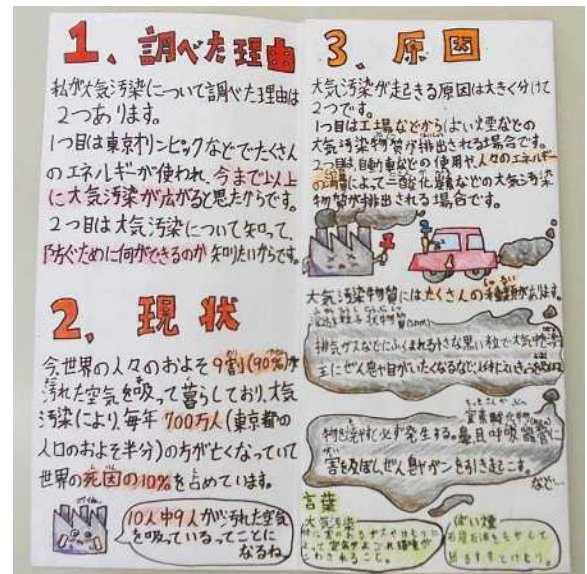 1、調べた理由
私が大気汚染について調べた理由は
2つあります。
1つ目は東京オリンピックなどでたくさん
のエネルギーが使われ、今まで以上
に大気汚染が広がると思たからです。
2つ目は大気汚染について知って、
防ぐために何ができるのか知りたいからです。
2、現状
今、世界の人々のおよそ9割(90%)が
汚れた空気を吸って暮らしており、大気
汚染により、毎年700万人(東京都の
人口のおよそ半分)の方が亡くなっていて
世界の死因の10%を占めています。
10人中9人が汚れた空気
を吸っているってことに
なるね。
3、原因
大気汚染が起きる原因は大きく分けて
2つです。
1つ目は工場などからばい煙などの
大気汚染物質が排出される場合です。
2つ目は、自動車などの使用や、人々のエネルギー
の消費によって二酸化炭素などの大気汚染
物質が排出される場合です。
大気汚染物質にはたくさんの種類があります。
浮遊粒子状物質(SPM)
排気ガスなどにふくまれる小さな黒い粒で大気
主にぜん息や目がいたくなるなど、人体に
窒素酸化物
物を燃やすと必ず発生する。鼻、目、呼吸器官に
害を及ぼし、ぜん息やガンを引き起こす。
など…
言葉
大気汚染
ばい煙